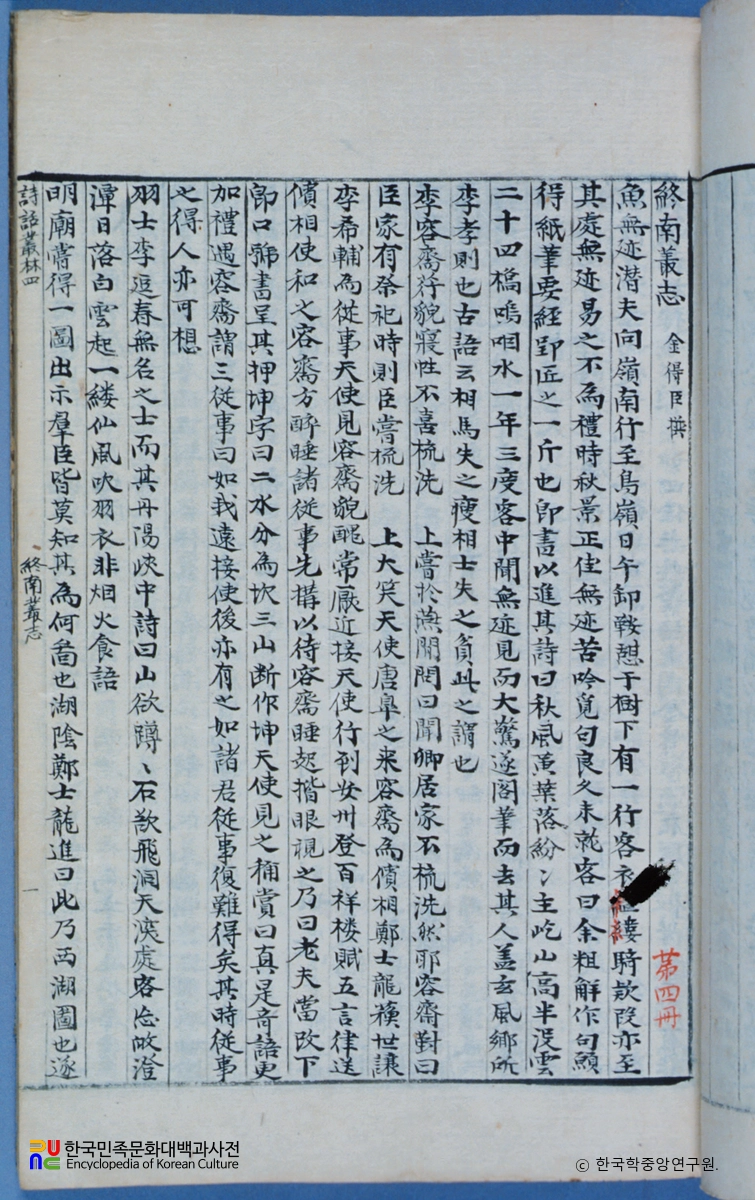 終南叢志 金得臣撰
第四冊
魚無迹潛夫向嶺南行至鳥嶺日午卸鞍憇于樹下有一行客衣縷騎款段亦至
其處無迹易之不為禮時秋景正佳無迹苦吟覓句良久未就客曰余粗解作句願
得紙筆要經郢匠之一斤也即書以進其詩曰秋風黃葉落紛〻主屹山高半沒雲
二十四橋嗚咽水一年三度客中聞無迹見而大驚遂閣筆而去其人盖玄風鄕所
李孝則也古語云相馬失之瘦相士失之貧此之謂也
李容齋荇貌寢性不喜梳洗 上嘗於燕閒問曰聞卿居家不梳洗然耶容齋對曰
臣家有祭祀時則臣嘗梳洗 上大笑天使唐臯之來容齋為儐相鄭士龍蘓世讓
李希輔為從事天使見容齋貌醜常厭近接天使行到安州登百祥楼賦五言律送
儐相使和之容齋方醉睡諸從事先搆以待容齋睡起揩眼視之乃曰老夫當改下
即口號書呈其押坤字曰二水分為坎三山断作坤天使見之稱賞曰真是奇語更
加禮遇容齋謂三從事曰如我遠接使後亦有之如諸君從事復難得矣其時從事
之得人亦可想
羽士李逗春無名之士而其丹陽峽中詩曰山欲蹲〻石欲飛洞天深處客忘㱕澄
潭日落白雲起一縷仙風吹羽衣非烟火食語
明廟嘗得一圖出示羣臣皆莫知其為何啚也湖陰鄭士龍進曰此乃西湖圖也遂
詩話叢林四
終南叢志
一
한국민족문화대백과사전
Encyclopedia of Korean Culture
ⓒ 한국학중앙연구원.